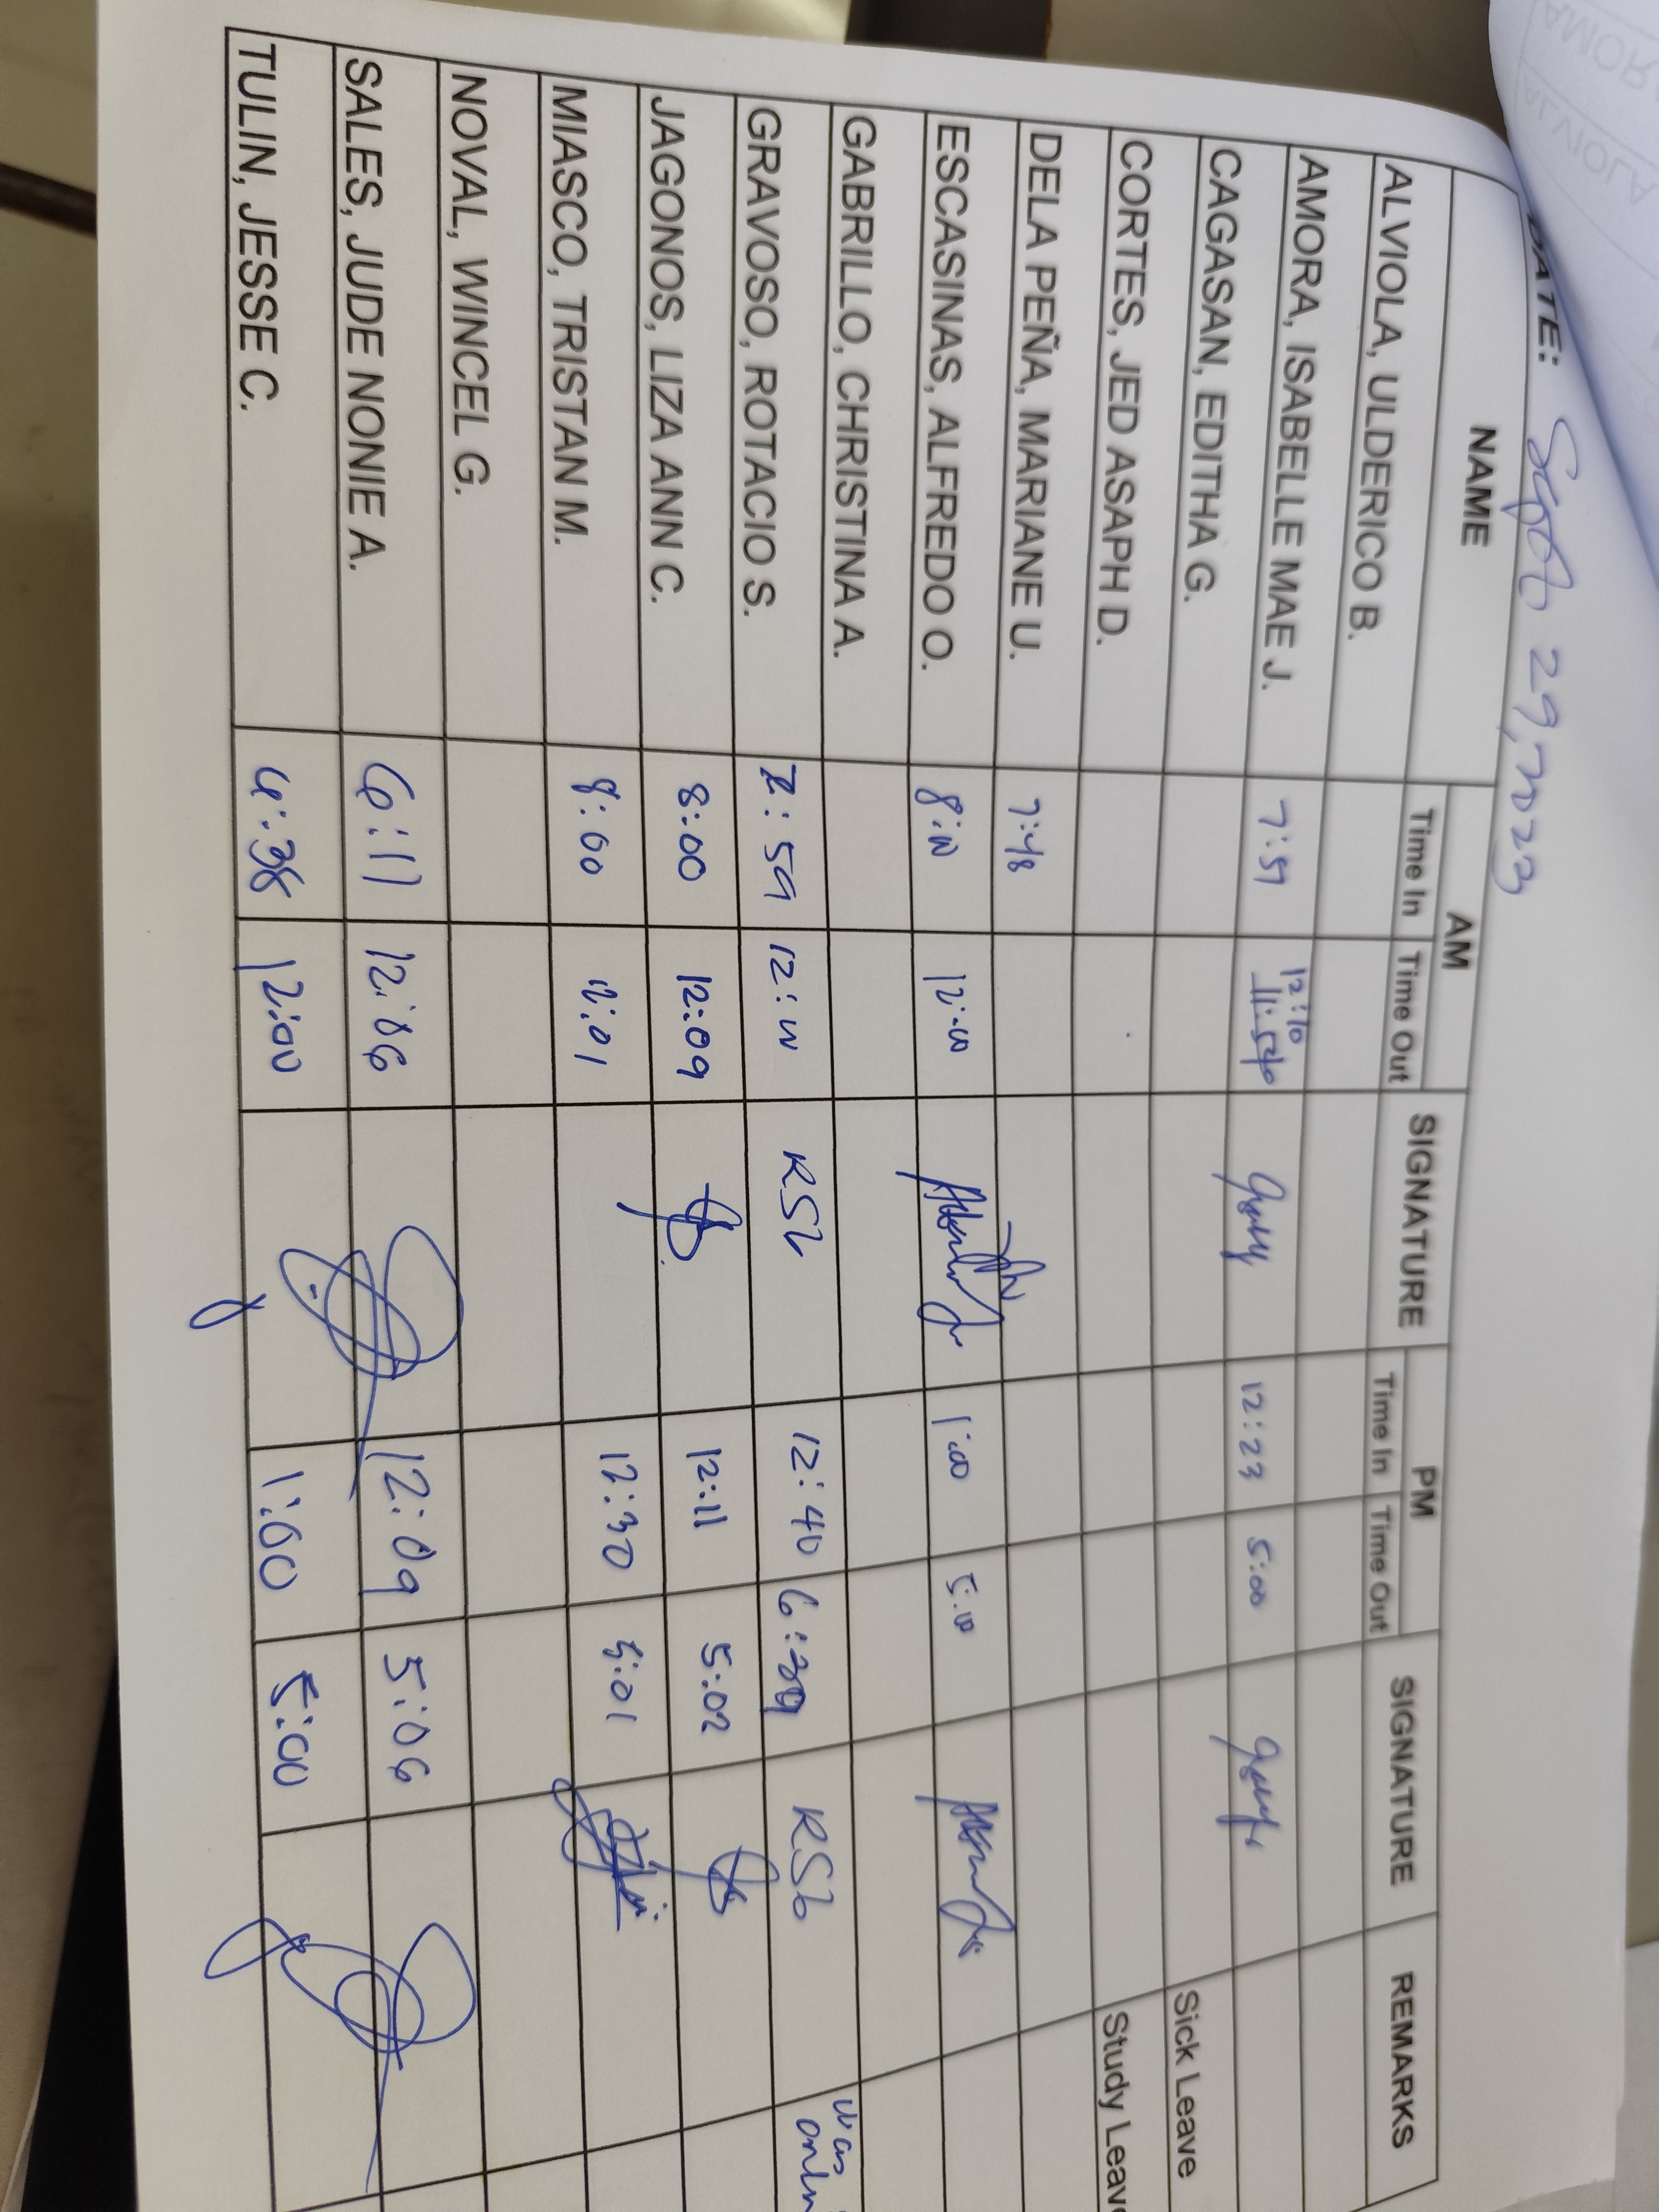 DATE: Sept 29, 2023
NAME AM SIGNATURE PM SIGNATURE REMARKS
Time In Time Out Time In Time Out
ALVIOLA, ULDERICO B.
AMORA, ISABELLE MAE J. 7:59 12:10 12:23 5:00
CAGASAN, EDITHA G. Sick Leave
CORTES, JED ASAPH D. Study Leave
DELA PEÑA, MARIANE U. 7:48
ESCASINAS, ALFREDO O. 8:00 12:00 1:00 5:00
GABRILLO, CHRISTINA A.
GRAVOSO, ROTACIO S. 7:59 12:00 12:40 was
JAGONOS, LIZA ANN C. 8:00 12:09 12:11 5:02
MIASCO, TRISTAN M. 8:00 12:01 12:30 5:01
NOVAL, WINCEL G.
SALES, JUDE NONIE A. 6:17 12:06 12:09 5:06
TULIN, JESSE C. 12:00 1:00 5:00